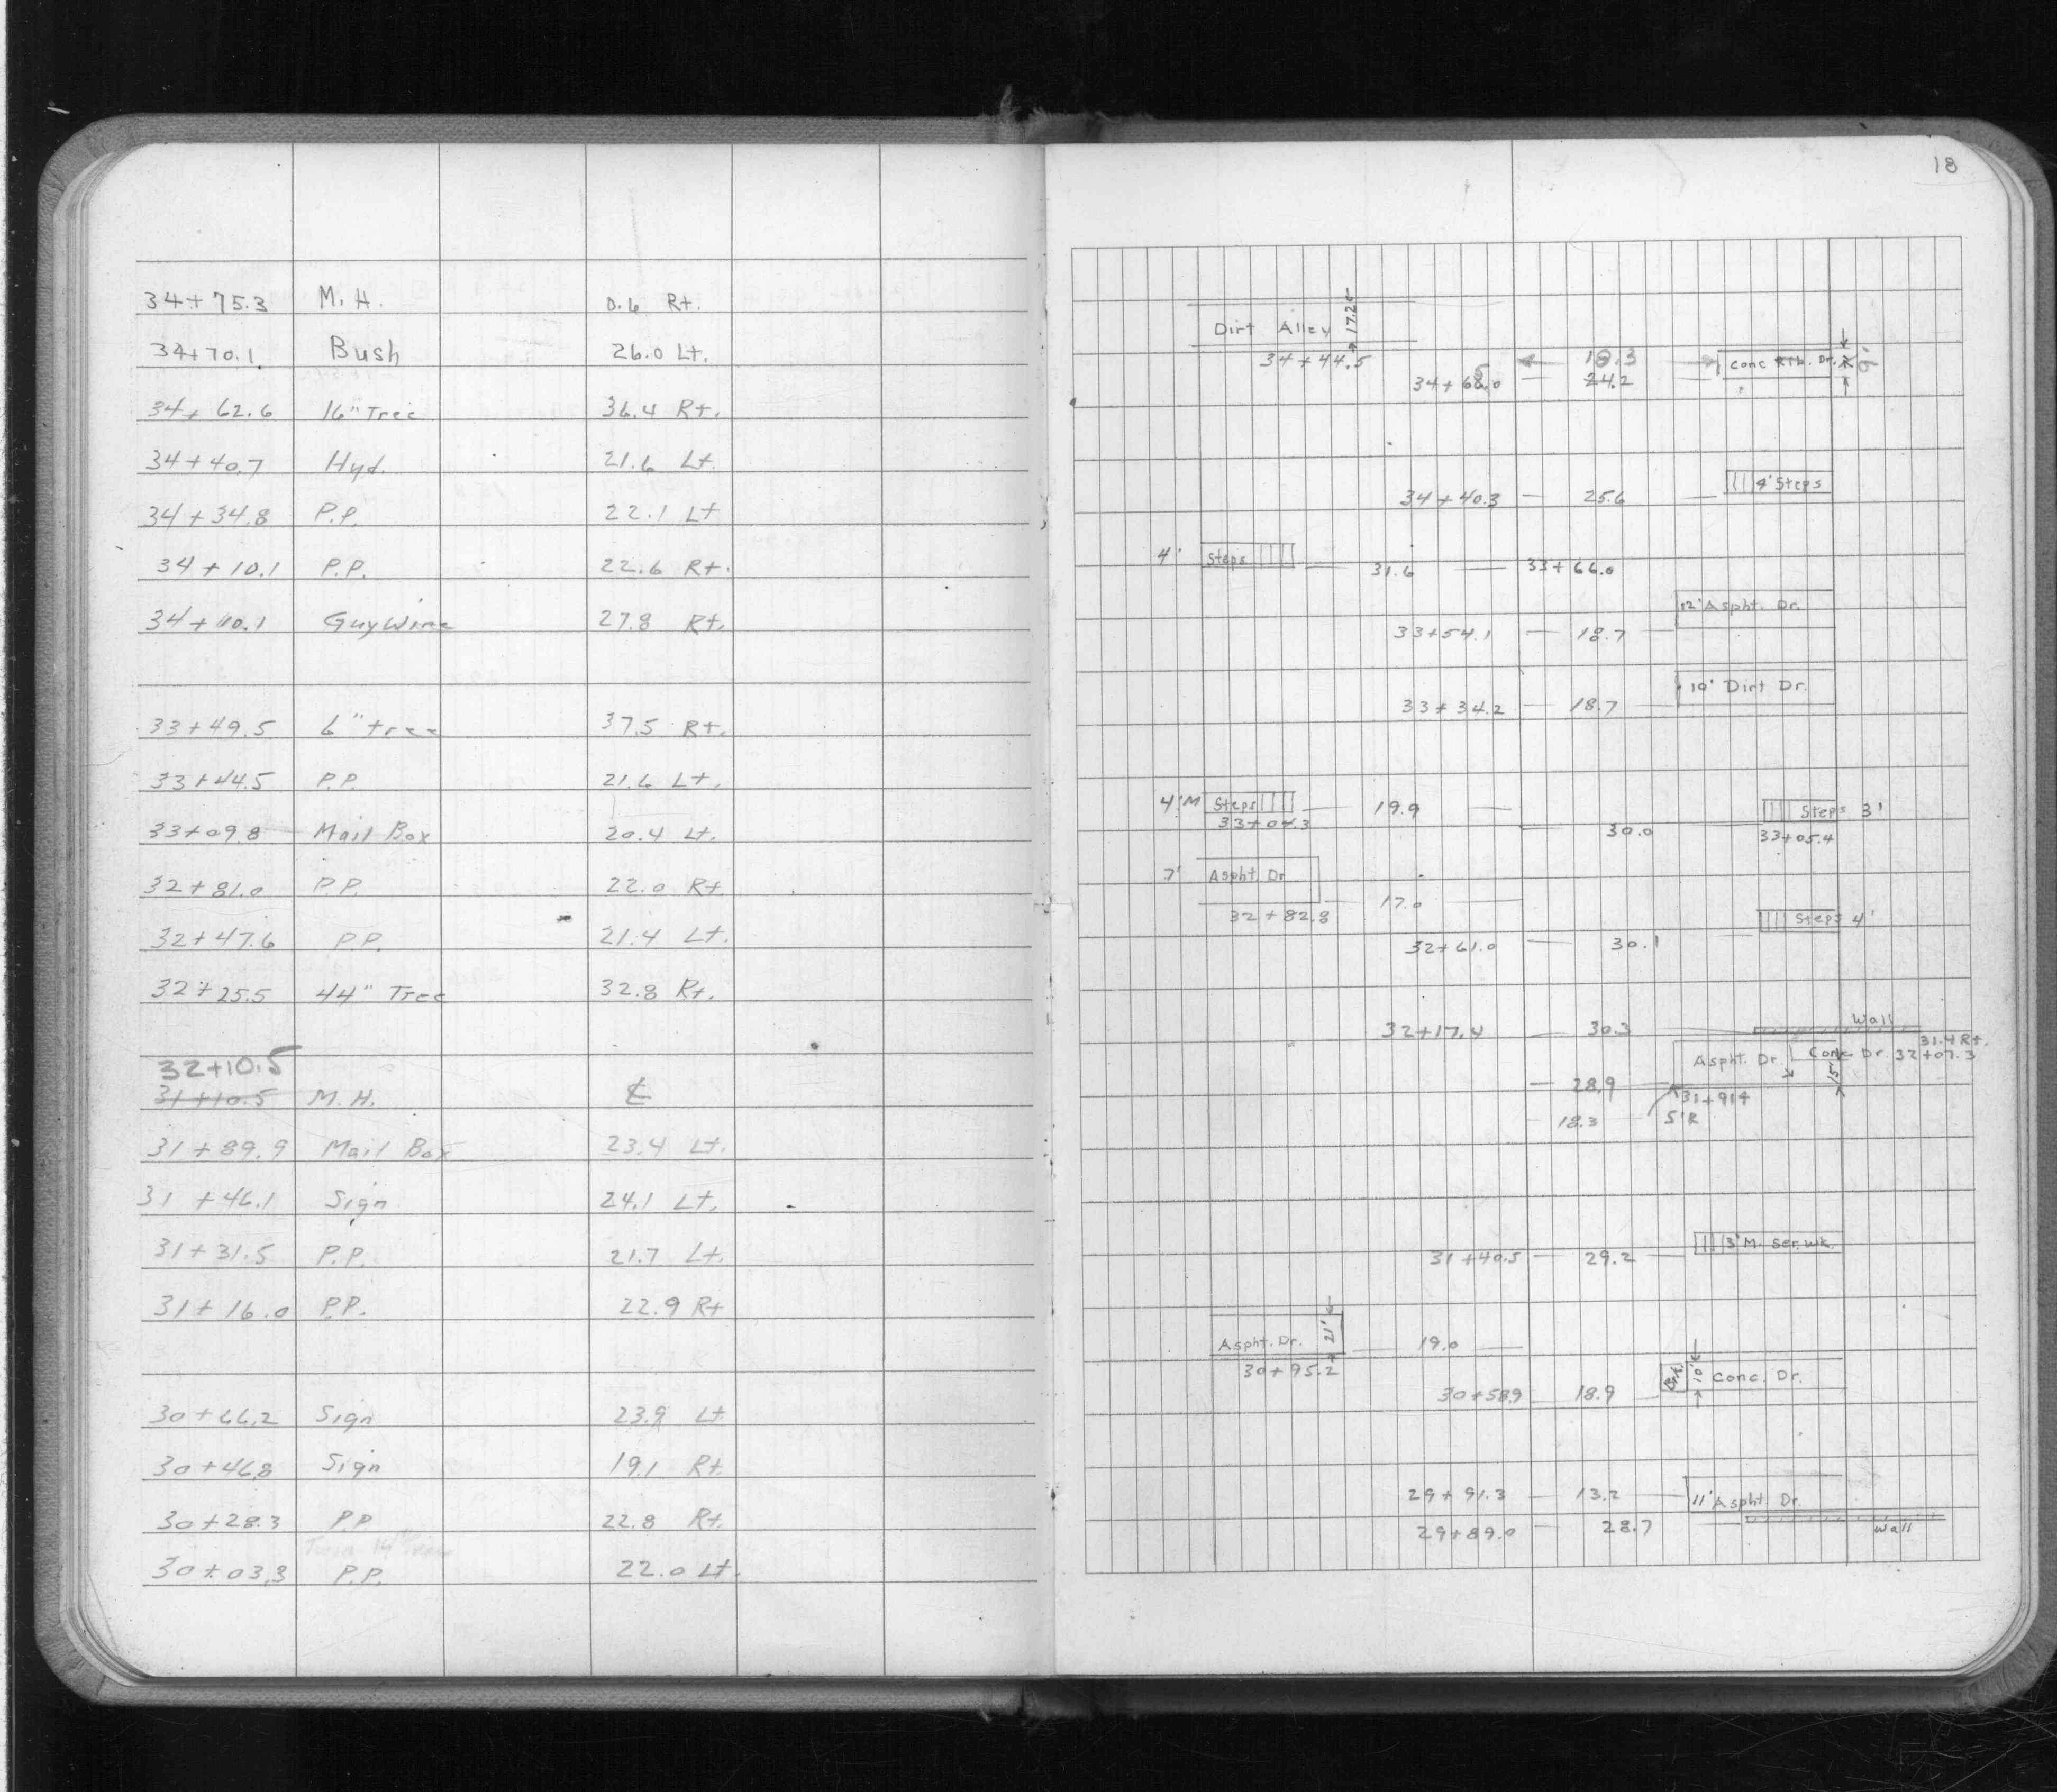 34+75.3 M.H. 0.6 Rt.
34+70.1 Bush 26.0 Lt.
34+62.6 16" Tree 36.4 Rt.
34+40.7 Hyd. 21.6 Lt.
34+34.8 P.P. 22.1 Lt
34+10.1 P.P. 22.6 Rt.
34+10.1 Guy Wire 27.8 Rt.
33+49.5 6" tree 37.5 Rt.
33+44.5 P.P. 21.6 Lt.
33+09.8 Mail Box 20.4 Lt.
32+81.0 P.P. 22.0 Rt
32+47.6 P.P. 21.4 Lt.
32+25.5 44" Tree 32.8 Rt.
32+10.5
31+10.5 M.H. ℄
31+89.9 Mail Box 23.4 Lt.
31+46.1 Sign 24.1 Lt.
31+31.5 P.P. 21.7 Lt.
31+16.0 P.P. 22.9 Rt
30+66.2 Sign 23.9 Lt
30+46.8 Sign 19.1 Rt.
30+28.3 P.P 22.8 Rt.
30+03.3 P.P. 22.0 Lt.
18
Dirt Alley 17.2
34+44.5 18.3 Conc Rib. Dr. 9'
34+ 24.2
34+40.3 25.6 4' Steps
4' Steps 31.6 33+66.0
12' Aspht. Dr.
33+54.1 18.7
10' Dirt Dr.
33+34.2 18.7
4'M Steps 19.9 Steps 3'
33+04.3 30.0 33+05.4
7' Aspht. Dr
32+82.8 17.0
Steps 4'
32+61.0 30.1
Wall
32+17.4 30.3 31.4 Rt.
Aspht. Dr. Conc Dr. 32+07.3
28.9 31+914 15'
18.3 5'R
31+40.5 29.2 3' M. Ser. Wk.
Aspht. Dr. 21' 19.0
30+95.2 Brk. 10' Conc. Dr.
30+589 18.9
29+91.3 13.2 11' Aspht. Dr.
29+89.0 28.7 Wall